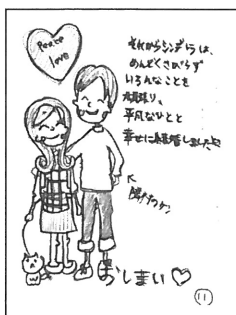 Peace
love
それからシンデレラは、
めんどくさがらず
いろんなことを
頑張り、
平凡なひとと
幸せに結婚しましたとさ
おしまい♡
11